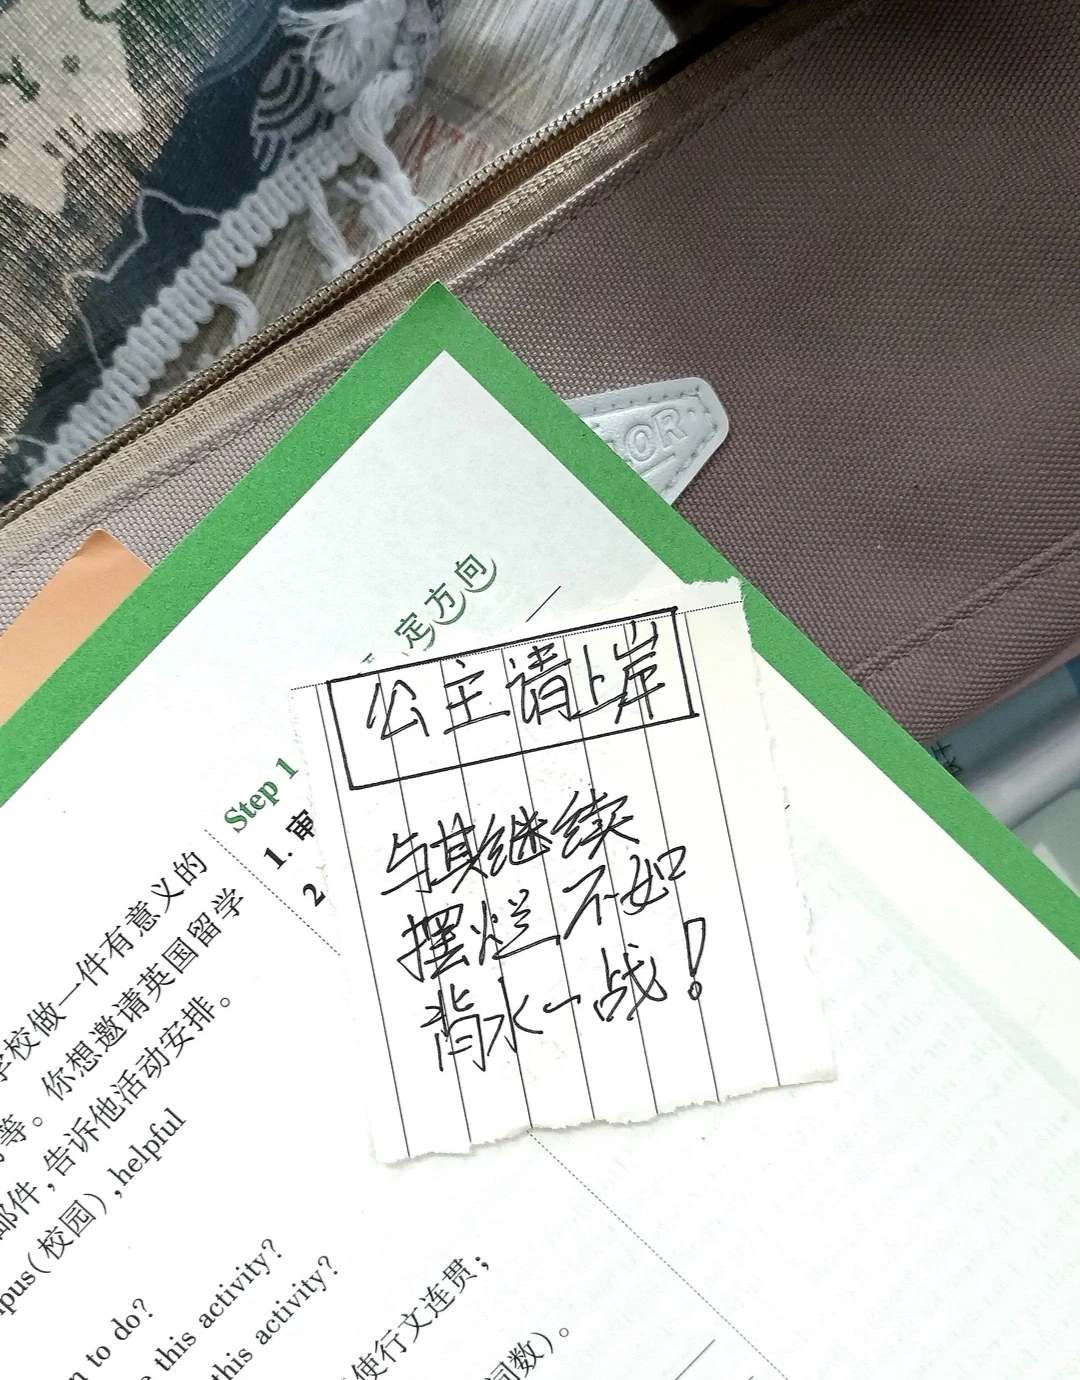 OR
定方向
公主请上岸
与其继续
摆烂不如
背水一战!
Step 1
1. 审
2
学校做一件有意义的
等。你想邀请英国留学
邮件,告诉他活动安排。
pus(校园),helpful
n to do?
e this activity?
this activity?
使行文连贯;
词数)。